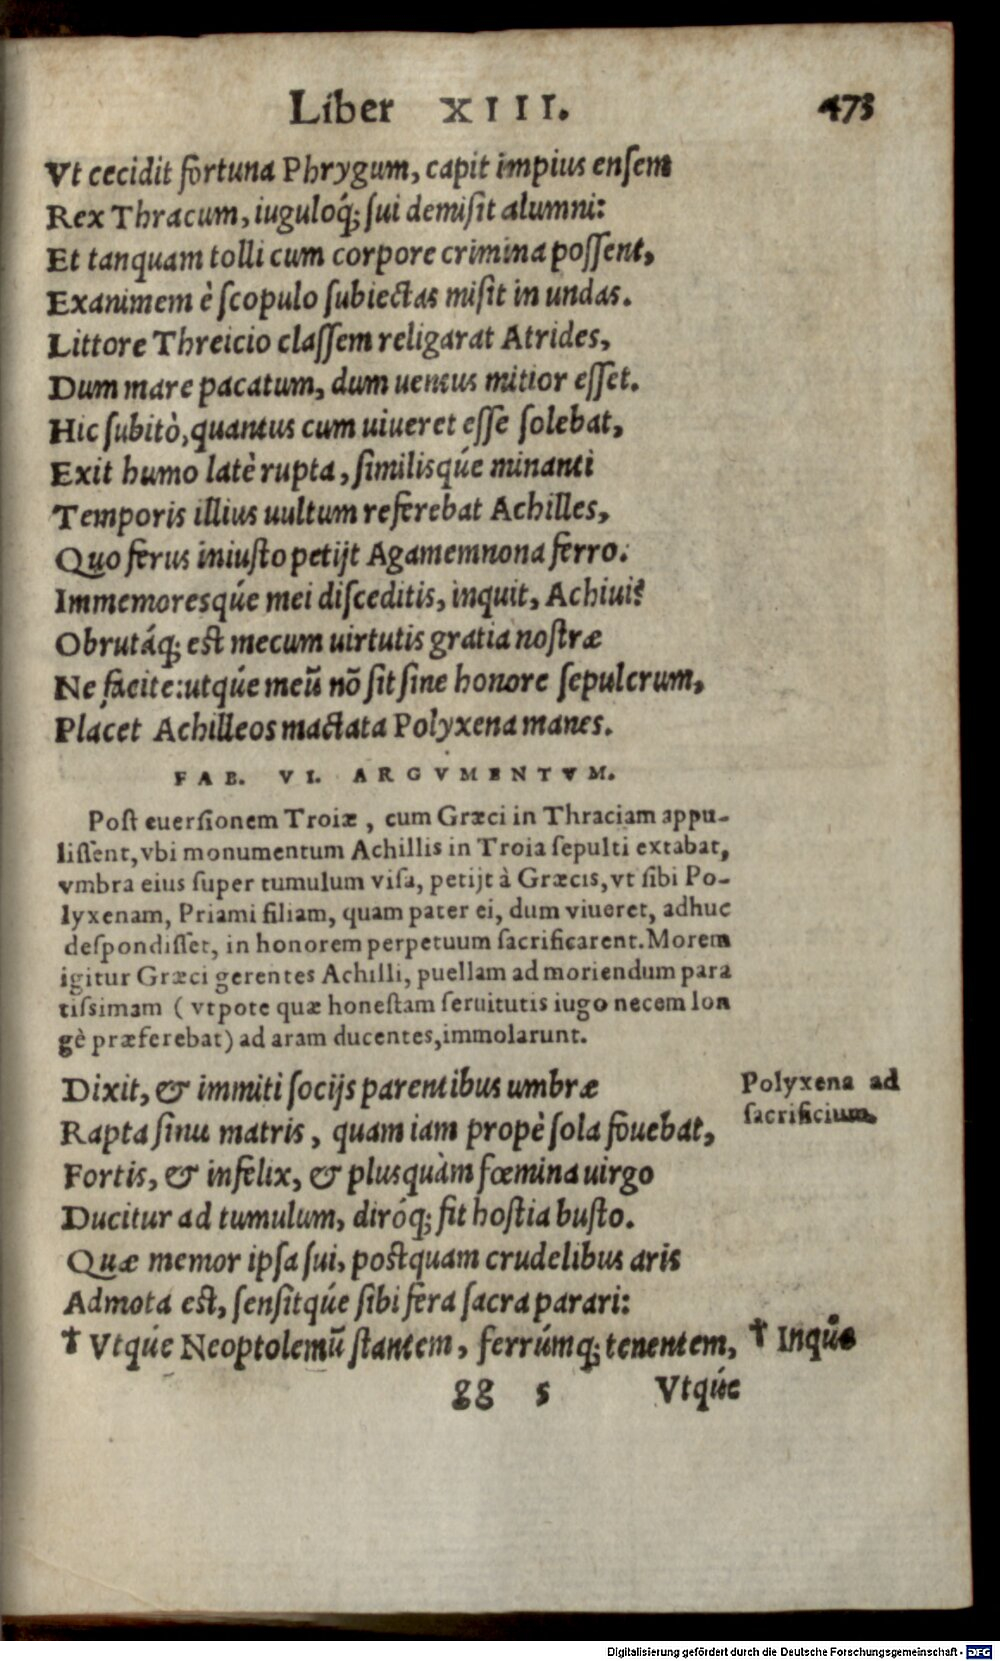 Liber XIII. 473
Vt cecidit fortuna Phrygum, capit impius ensem
Rex Thracum, iuguloq́; sui demisit alumni:
Et tanquam tolli cum corpore crimina possent,
Exanimem è scopulo subiectas misit in undas.
Littore Threicio classem religarat Atrides,
Dum mare pacatum, dum uentus mitior esset.
Hic subitò, quantus cum uiueret esse solebat,
Exit humo latè rupta, similisqúe minanti
Temporis illius uultum referebat Achilles,
Quo ferus iniusto petijt Agamemnona ferro.
Immemoresqúe mei disceditis, inquit, Achiui?
Obrutáq; est mecum uirtutis gratia nostræ
Ne facite: utqúe meũ nõ sit sine honore sepulcrum,
Placet Achilleos mactata Polyxena manes.
FAB. VI. ARGVMENTVM.
Post euersionem Troiæ, cum Græci in Thraciam appu-
lissent, vbi monumentum Achillis in Troia sepulti extabat,
vmbra eius super tumulum visa, petijt à Græcis, vt sibi Po-
lyxenam, Priami filiam, quam pater ei, dum viueret, adhuc
despondisset, in honorem perpetuum sacrificarent. Morem
igitur Græci gerentes Achilli, puellam ad moriendum para
tissimam (vtpote quæ honestam seruitutis iugo necem lon
gè præferebat) ad aram ducentes, immolarunt.
Dixit, & immiti socijs parentibus umbræ
Rapta sinu matris, quam iam propè sola fouebat,
Fortis, & infelix, & plusquàm fœmina uirgo
Ducitur ad tumulum, diróq; fit hostia busto.
Quæ memor ipsa sui, postquam crudelibus aris
Admota est, sensitqúe sibi fera sacra parari:
† Vtqúe Neoptolemũ stantem, ferrúmq; tenentem,
Polyxena ad
sacrificium.
† Inqúe
gg 5 Vtqúe
Digitalisierung gefördert durch die Deutsche Forschungsgemeinschaft - DFG